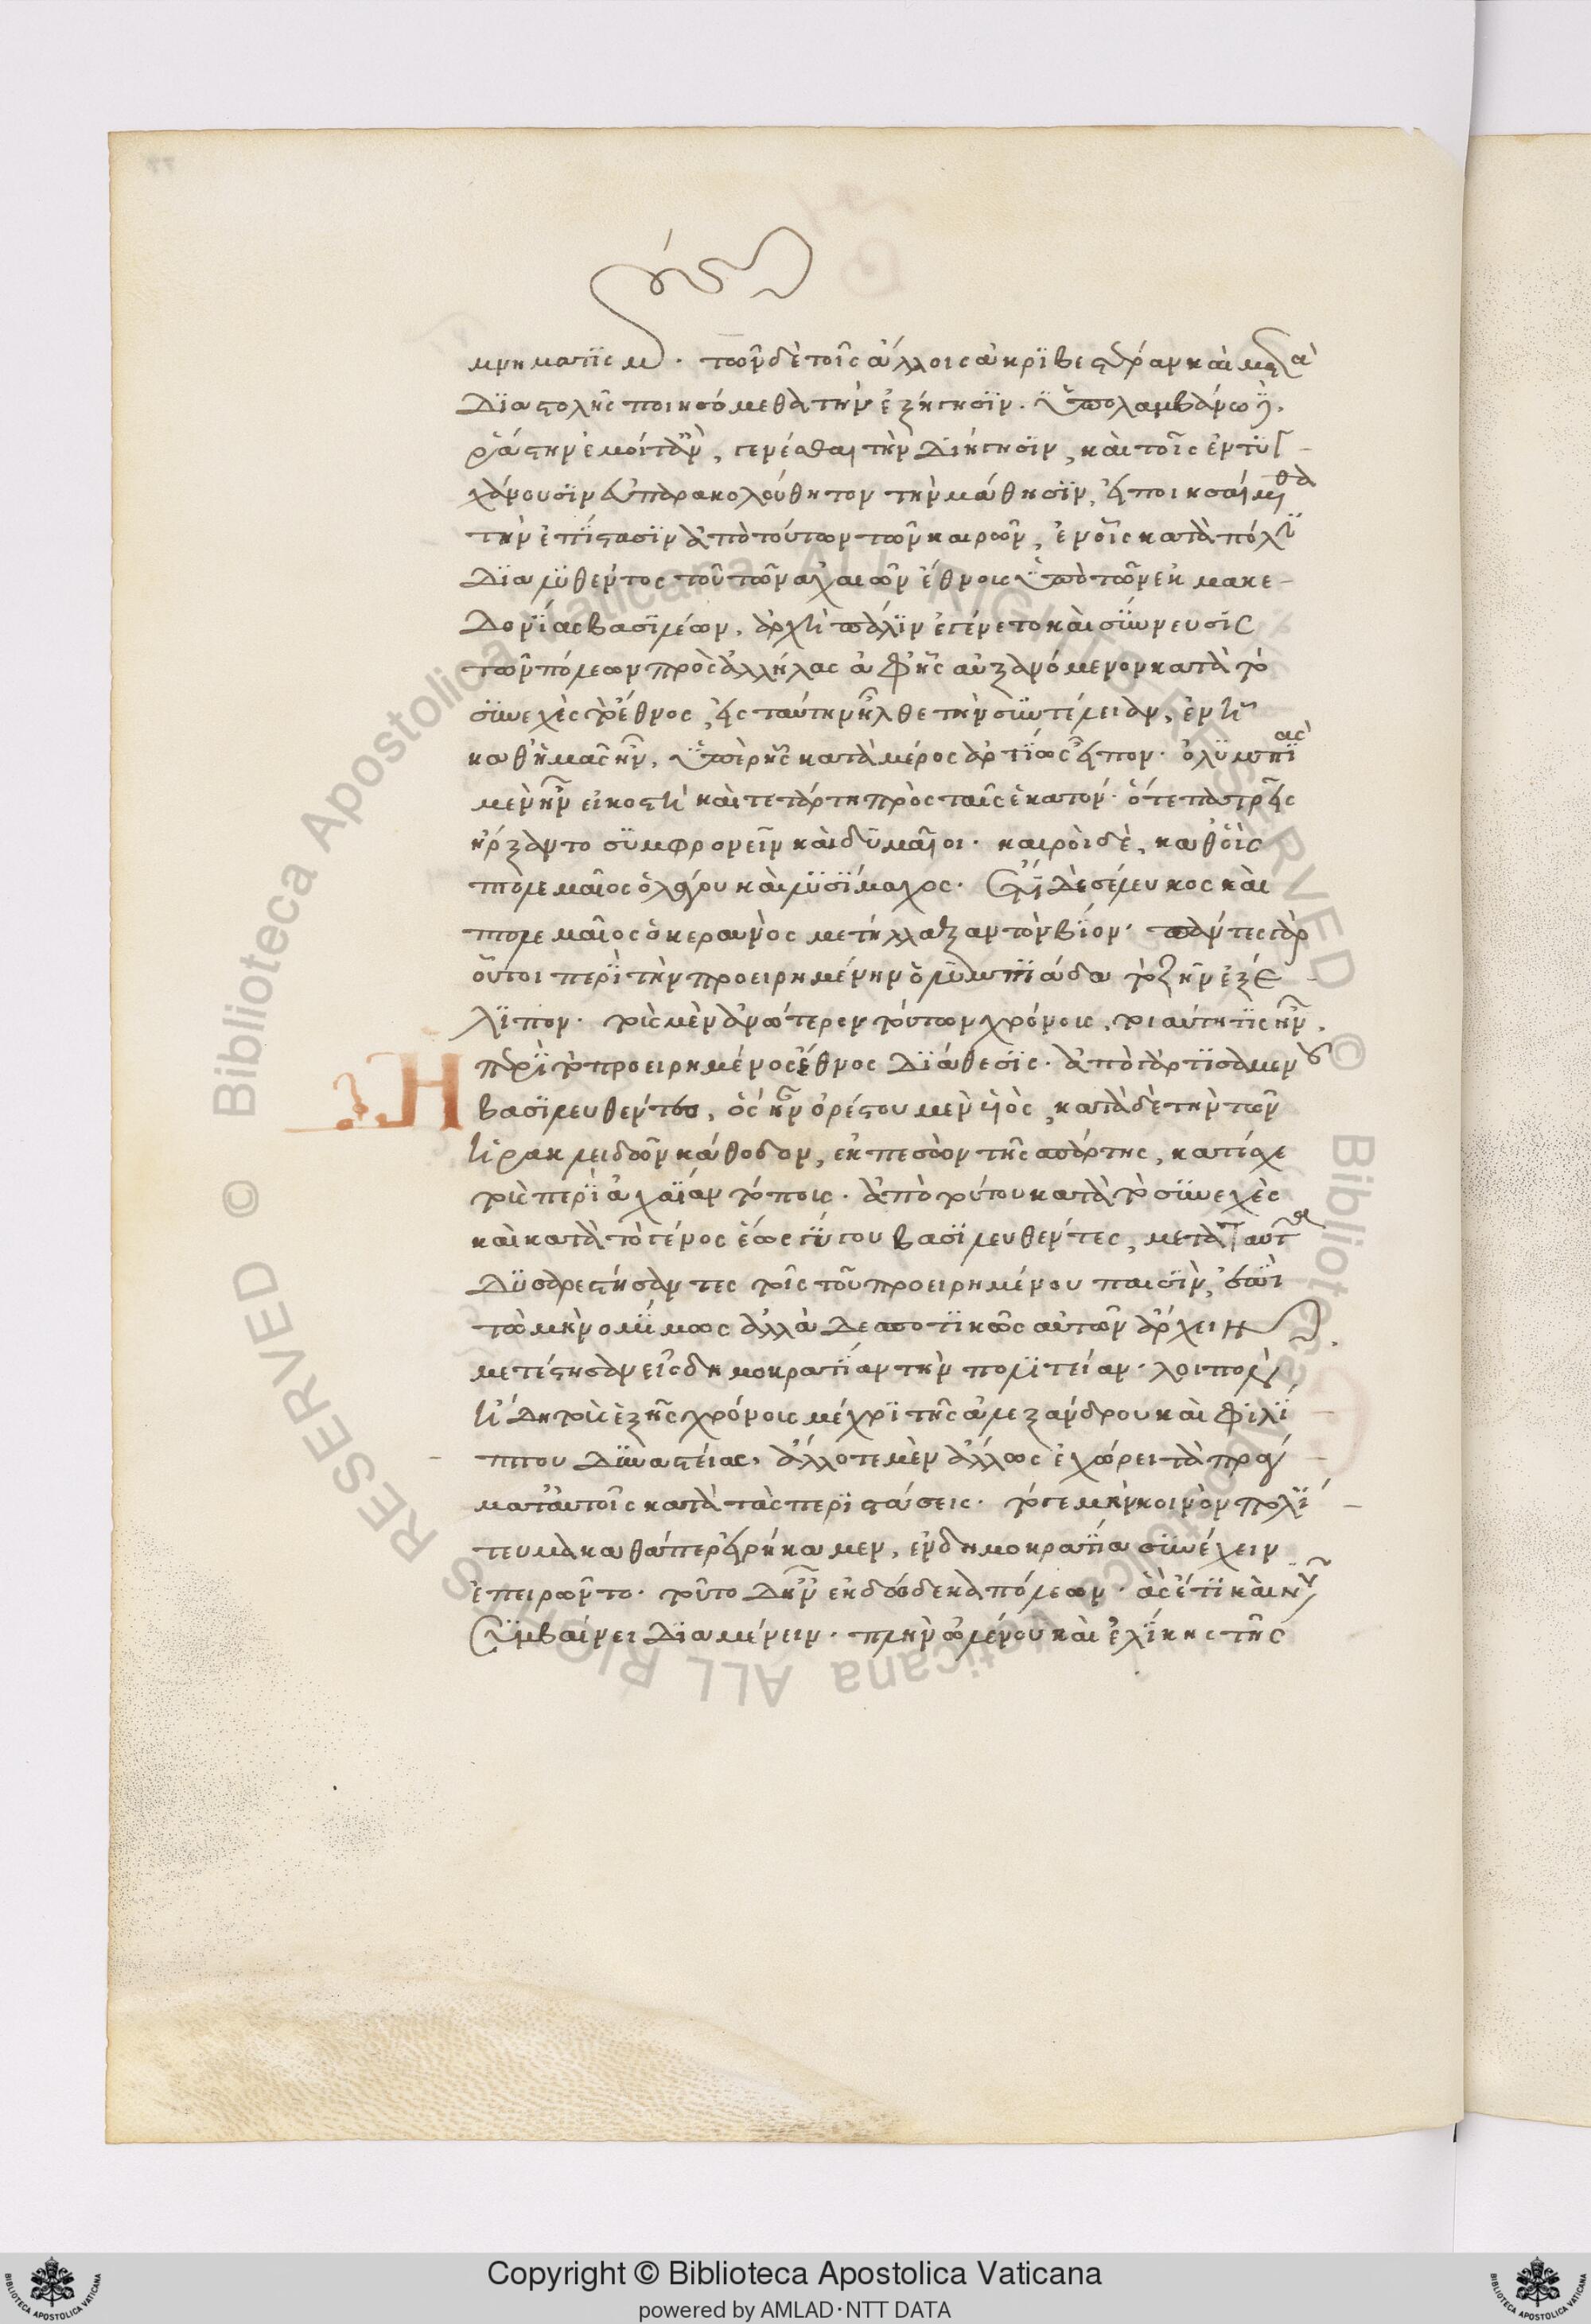 μνηματισμὸν. τῶν δὲ τοῖς ἄλλοις ἀκριβεστέραν καὶ μετὰ
διαστολῆς ποιησόμεθα τὴν ἐξήγησιν. ὑπολαμβάνω γὰρ
ῥάστην ἐμοί τ' ἂν, γενέσθαι τὴν διήγησιν, καὶ τοῖς ἐντυγ-
χάνουσιν εὐπαρακολούθητον τὴν μάθησιν, εἰ ποιησαίμεθα
τὴν ἐπίστασιν ἀπὸ τούτων τῶν καιρῶν, ἐν οἷς κατὰ πόλιν
διαλυθέντος τοῦ τῶν ἀχαιῶν ἔθνους ὑπὸ τῶν ἐκ μακε-
δονίας βασιλέων, ἀρχὴ πάλιν ἐγένετο καὶ σύννευσις
τῶν πόλεων πρὸς ἀλλήλας ἀφ' ἧς αὐξανόμενον κατὰ τὸ
συνεχὲς τὸ ἔθνος, εἰς ταύτην ἦλθε τὴν συντέλειαν, ἐν ᾗ
καθ' ἡμᾶς ἦν, ὑπὲρ ἧς κατὰ μέρος ἀρτίως εἶπον. ὀλυμπιὰς
μὲν ἦν εἰκοστὴ καὶ τετάρτη πρὸς ταῖς ἑκατόν. ὅτε πατρεῖς
ἤρξαντο συμφρονεῖν καὶ δυμαῖοι. καιροὶ δὲ, καθ' οὓς
πτολεμαῖος ὁ λάγου καὶ λυσίμαχος. ἔτι δὲ σέλευκος καὶ
πτολεμαῖος ὁ κεραυνὸς μετήλλαξαν τὸν βίον. πάντες γὰρ
οὗτοι περὶ τὴν προειρημένην ὀλυμπιάδα τὸ ζῆν ἐξέ-
λιπον. τοὺς μὲν ἀνώτερον τούτων χρόνους, τοιαύτη τις ἦν,
Η περὶ τὸ προειρημένον ἔθνος διάθεσις. ἀπὸ γὰρ τισαμενοῦ
βασιλευθέντες, ὃς ἦν ὀρέστου μὲν υἱὸς, κατὰ δὲ τὴν τῶν
ἡρακλειδῶν κάθοδον, ἐκπεσὼν τῆς σπάρτης, κατέσχε
τοὺς περὶ ἀχαΐαν τόπους. ἀπὸ τούτου κατὰ τὸ συνεχὲς
καὶ κατὰ τὸ γένος ἕως γύγου βασιλευθέντες, μετὰ ταῦτα
δυσαρεστήσαντες τοῖς τοῦ προειρημένου παισὶν, ἐπὶ
τῶ μὴ νομίμως ἀλλὰ δεσποτικῶς αὐτῶν ἄρχειν.
μετέστησαν εἰς δημοκρατίαν τὴν πολιτείαν. λοιπὸν
ἤδη τοὺς ἑξῆς χρόνους μέχρι τῆς ἀλεξάνδρου καὶ φιλίπ-
που δυναστείας, ἄλλοτε μὲν ἄλλως ἐχώρει τὰ πράγ-
ματ' αὐτοῖς κατὰ τὰς περιστάσεις. τό γε μὴν κοινὸν πολί-
τευμα καθάπερ εἰρήκαμεν, ἐν δημοκρατία συνέχειν
ἐπειρῶντο. τοῦτο δ' ἦν ἐκ δώδεκα πόλεων. ἃς ἔτι καὶ νῦν
συμβαίνει διαμένειν. πλὴν ὠλένου καὶ ἑλίκης τῆς